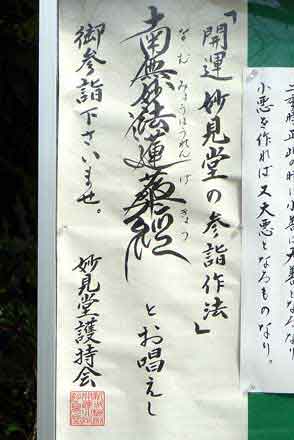 「開運妙見堂の参詣作法」
南無妙法蓮華經
なむみょうほうれんげきょう
とお唱えし
御参詣下さいませ。
妙見堂護持会
小悪を作れば又大悪となるものなり。